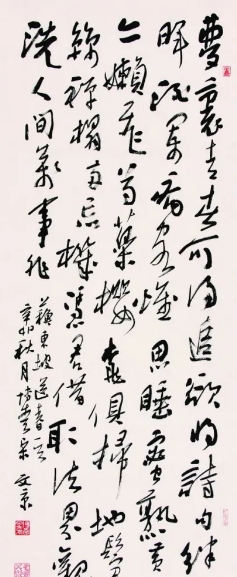 夢裏青春可得追欲將詩句絆
暉酒闌病客惟思睡蜜熟黄
亦懶飛芍藥櫻桃俱掃地鬢
絲禪榻兩忘機憑君借取法界觀
洗人間萬事非
蘇東坡送春詩
辛卯秋月文京